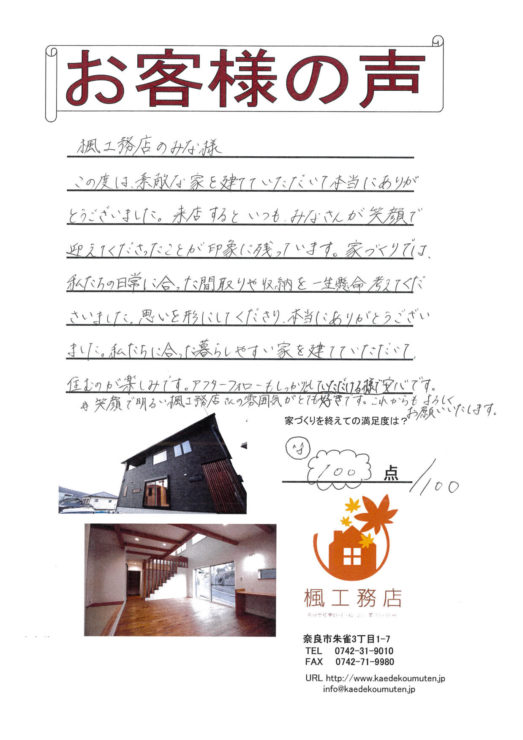 お客様の声
楓工務店のみな様
この度は、素敵な家を建てていただいて本当にありが
とうございました。来店するといつも、みなさんが笑顔で
迎えてくださったことが印象に残っています。家づくりでは、
私たちの日常に合った間取りや収納を一生懸命考えてくだ
さいました。思いを形にしてくださり、本当にありがとうござい
ました。私たちに合った暮らしやすい家を建てていただいて、
住むのが楽しみです。アフターフォローもしっかりしていただける様で安心です。
笑顔で明るい楓工務店さんの雰囲気がとても好きです。これからもよろしく
お願いいたします。
家づくりを終えての満足度は?
100 点 /100
楓工務店
奈良市朱雀3丁目1-7
TEL 0742-31-9010
FAX 0742-71-9980
URL http://www.kaedekoumuten.jp
info@kaedekoumuten.jp